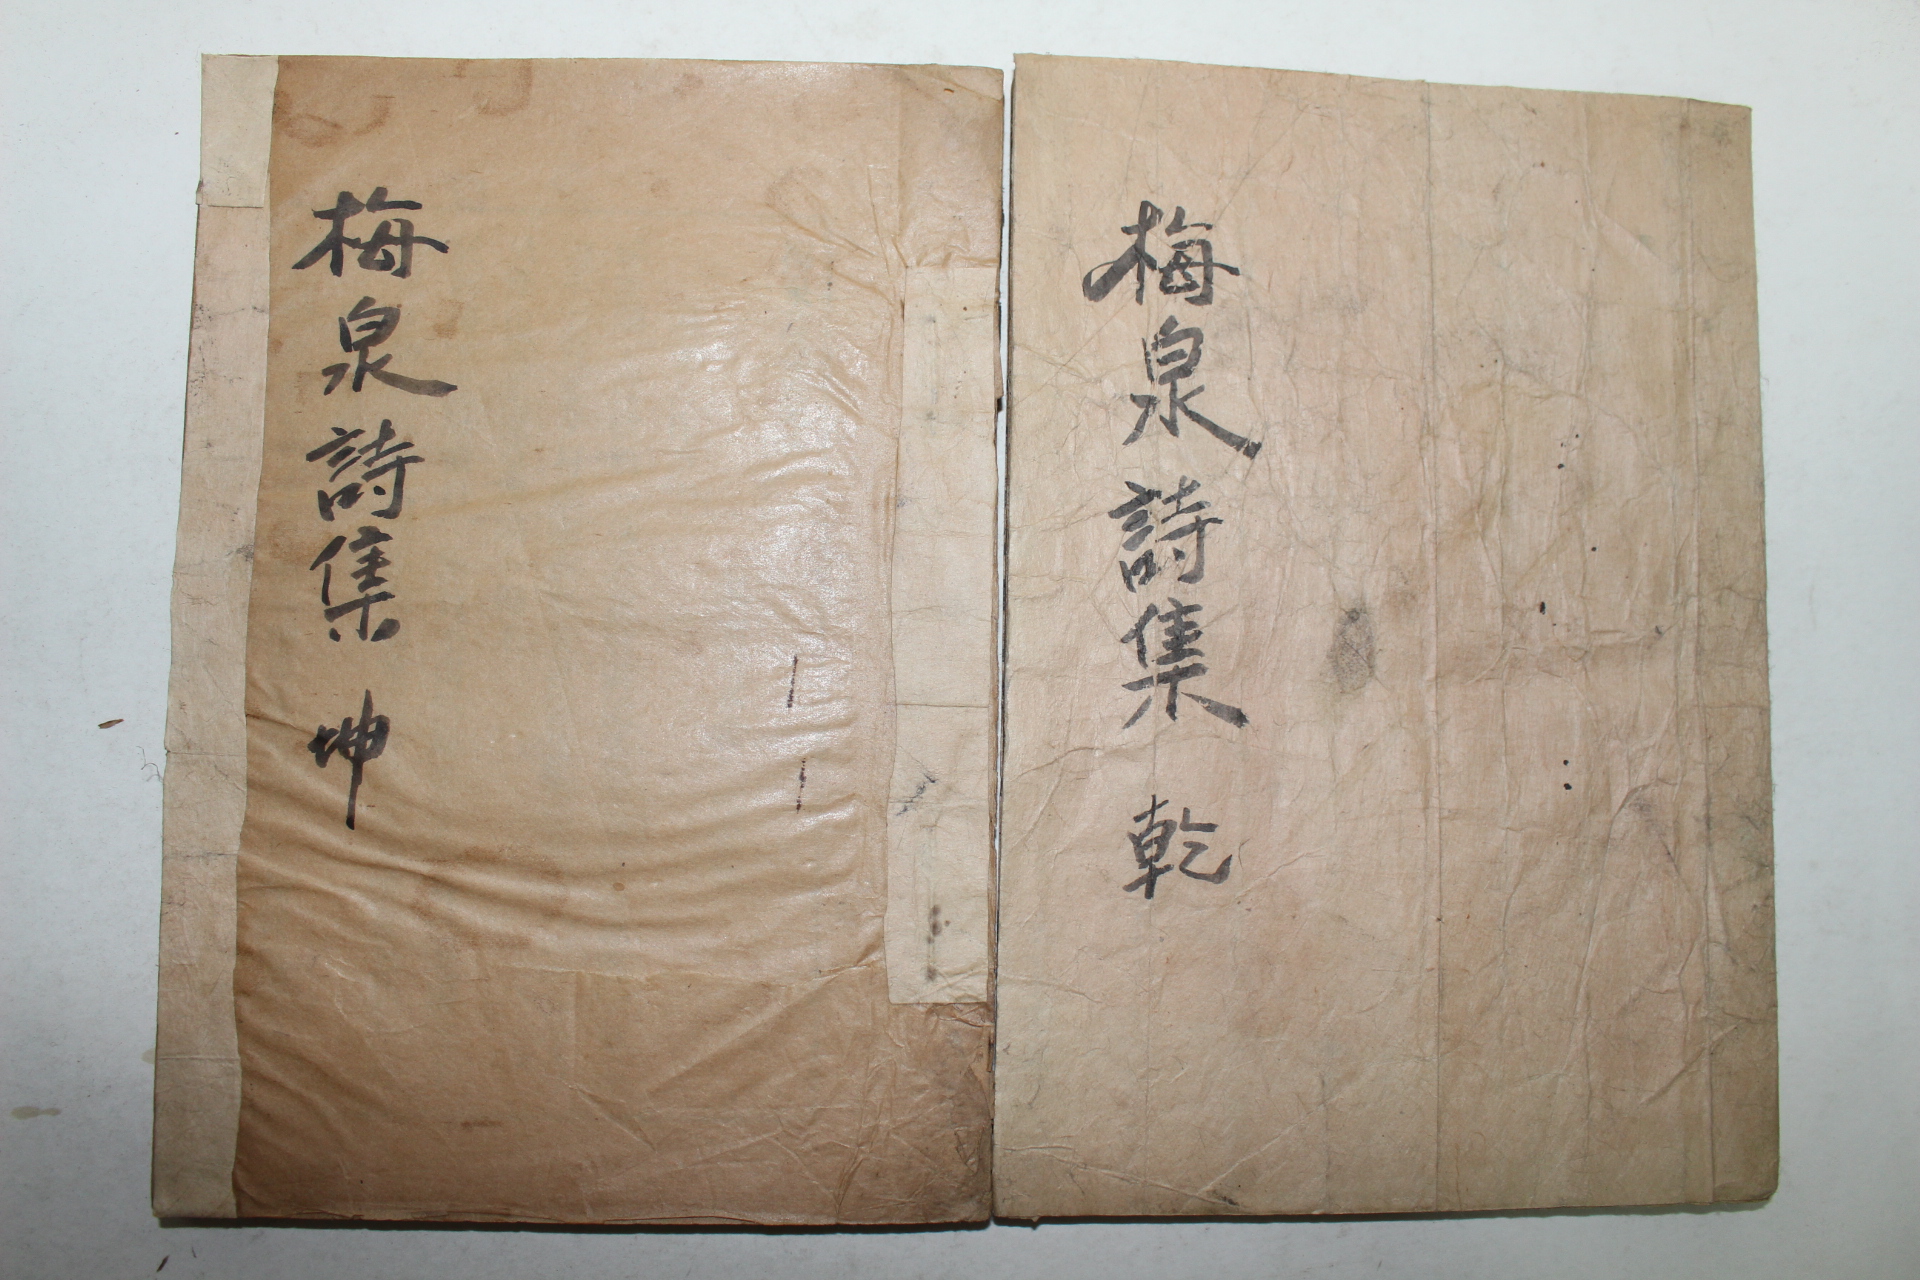 梅泉詩集 乾
梅泉詩集 坤